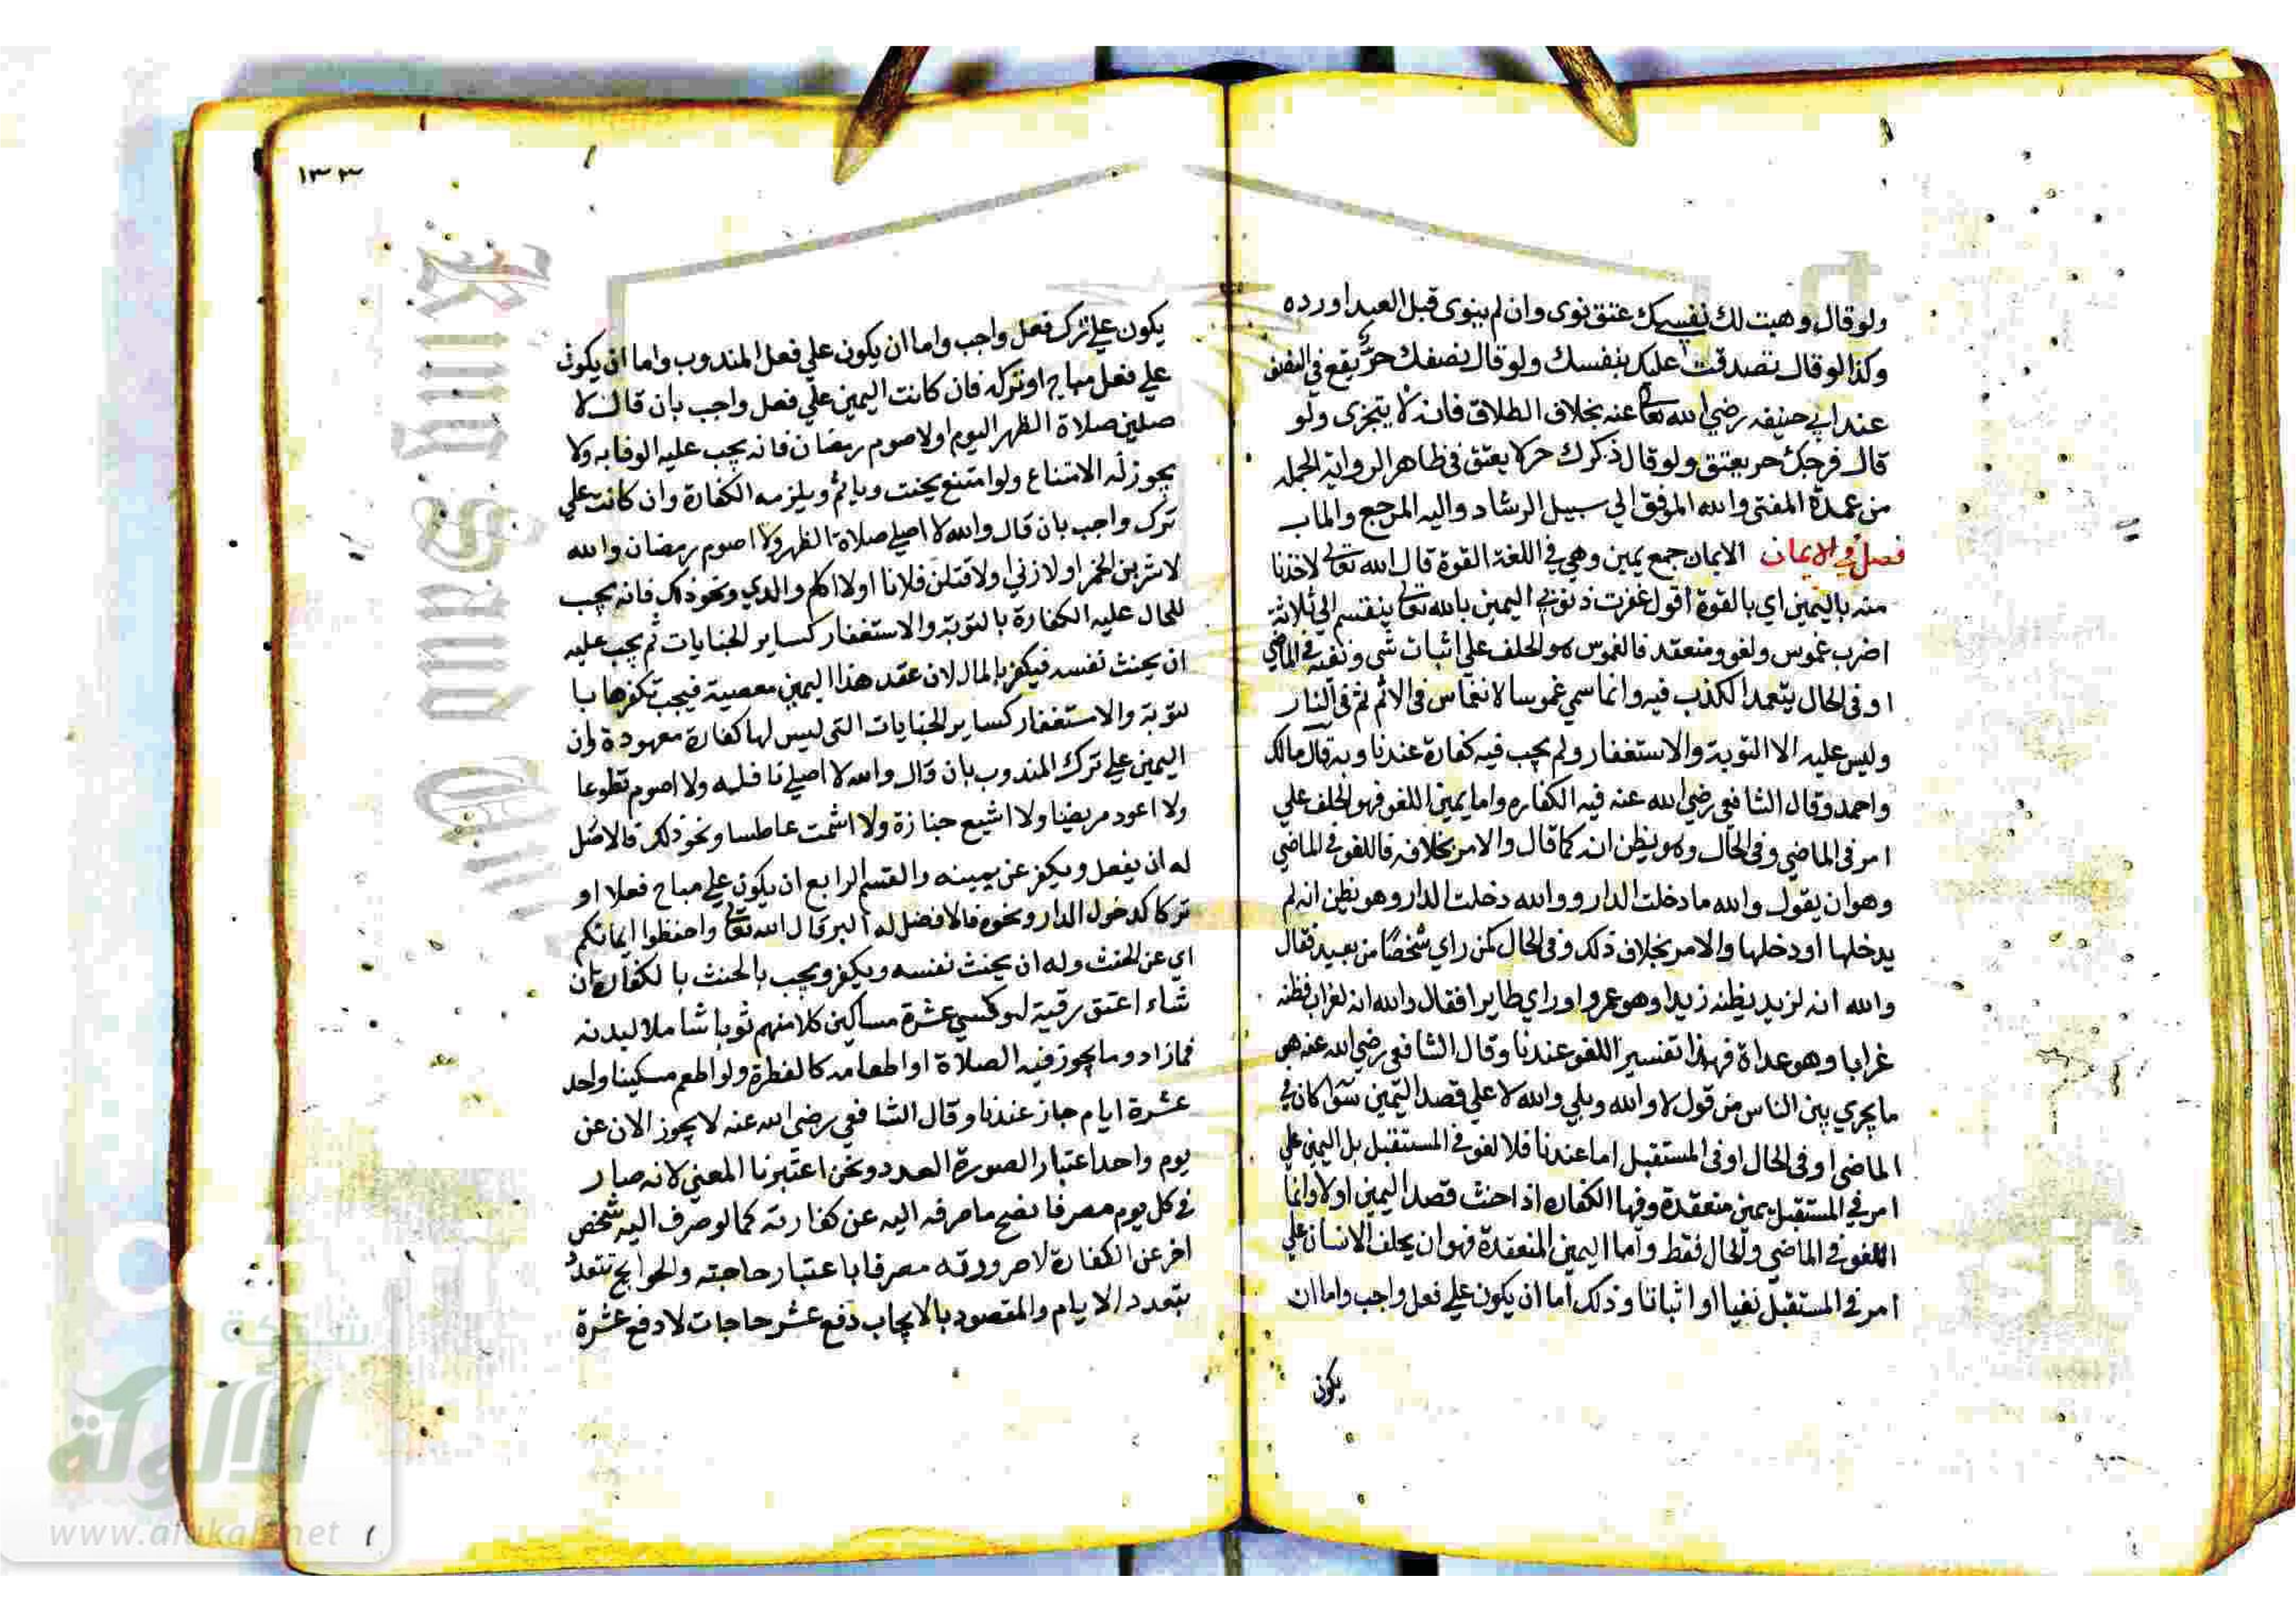 ولو قال وهبت لك نفسك عتق نوى وان لم ينوى قبل العبد او رده
وكذا لو قال تصدقت عليك بنفسك ولو قال نصفك حر يقع في النصف
عند ابي حنيفه رضي الله تعالى عنه بخلاف الطلاق فانه لا يتجزى ولو
قال فرجك حر يعتق ولو قال ذكرك حر لا يعتق في ظاهر الرواية الجمله
من عمدة المفتى والله الموفق الي سبيل الرشاد واليه المرجع والماب
فصل في الايمان الايمان جمع يمين وهي في اللغة القوة قال الله تعالى لاخذنا
منه باليمين اي بالقوة اقول غفرت ذنوبي اليمين بالله تعالى ينقسم الي ثلاثة
اضرب غموس ولغو ومنعقد فالغموس هو الحلف علي اثبات شي ونفيه في الماضي
او في الحال يتعمد الكذب فيه وانما سمي غموسا لانغماس في الاثم ثم في النار
وليس عليه الا التوبة والاستغفار ولم يجب فيه كفارة عندنا وبه قال مالك
واحمد وقال الشافعي رضي الله عنه فيه الكفاره واما يمين اللغو فهو الحلف علي
امر في الماضي وفي الحال وهو يظن انه كما قال والامر بخلافه فاللغو في الماضي
وهو ان يقول والله ما دخلت الدار ووالله دخلت الدار وهو يظن انه لم
يدخلها او دخلها والامر بخلاف ذلك وفي الحال كمن راي شخصا من بعيد فقال
والله انه لزيد يظنه زيدا وهو عمرو او راي طايرا فقال والله انه لغراب فظنه
غرابا وهو عداة فهذا تفسير اللغو عندنا وقال الشافعي رضي الله عنه هي
ما يجري بين الناس من قول لا والله وبلي والله لا علي قصد اليمين سوا كان في
الماضي او في الحال او في المستقبل اما عندنا فلا لغو في المستقبل بل اليمين علي
امر في المستقبل يمين منعقدة وفيها الكفاره اذا حنث قصد اليمين او لا وانما
اللغو في الماضي والحال فقط واما اليمين المنعقدة فهو ان يحلف الانسان علي
امر في المستقبل نفيا او اثباتا وذلك اما ان يكون علي فعل واجب واما ان
يكون
١٣٣
يكون علي ترك فعل واجب واما ان يكون علي فعل المندوب واما ان يكون
علي فعل مباح او تركه فان كانت اليمين علي فعل واجب بان قال لا
صلين صلاة الظهر اليوم اولاصوم رمضان فانه يجب عليه الوفا به ولا
يجوز له الامتناع ولو امتنع يحنث وياثم ويلزمه الكفارة وان كانت علي
ترك واجب بان قال والله لا اصلي صلاة الظهر ولا اصوم رمضان والله
لاشربن الخمر او لازني او لاقتلن فلانا او لا اكلم والدي ونحو ذلك فانه يجب
للحال عليه الكفارة بالتوبة والاستغفار كساير الجنايات ثم يجب عليه
ان يحنث نفسه فيكفر بالمال لان عقد هذا اليمين معصية فيجب تكفرها با
لتوبة والاستغفار كساير الجنايات التي ليس لها كفارة معهودة وان
اليمين علي ترك المندوب بان قال والله لا اصلي نافله ولا اصوم تطوعا
ولا اعود مريضا ولا اشيع جنازة ولا اشمت عاطسا ونحو ذلك فالافضل
له ان يفعل ويكفر عن يمينه والقسم الرابع ان يكون علي مباح فعلا او
تركا كدخول الدار ونحوه فالافضل له البر قال الله تعالى واحفظوا ايمانكم
اي عن الحنث وله ان يحنث نفسه ويكفر ويجب بالحنث بالكفارة ان
شاء اعتق رقبة او كسي عشرة مساكين كلا منهم ثوبا شاملا لبدنه
فمازاد وما يجوز فيه الصلاة او اطعامه كالفطرة ولو اطعم مسكينا واحد
عشرة ايام جاز عندنا وقال الشافعي رضي الله عنه لا يجوز الان عن
يوم واحد اعتبارا لصورة العدد ونحن اعتبرنا المعني لانه صار
في كل يوم مصرفا نصح ما صرفه اليه عن كفارته كما لو صرف اليه شخص
اخر عن الكفارة لا صرورته مصرفا باعتبار حاجته والحوايج تتعدد
بتعدد الايام والمقصود بالايجاب دفع عشر حاجات لا دفع عشرة
شبكة
الألوكة
www.alukah.net